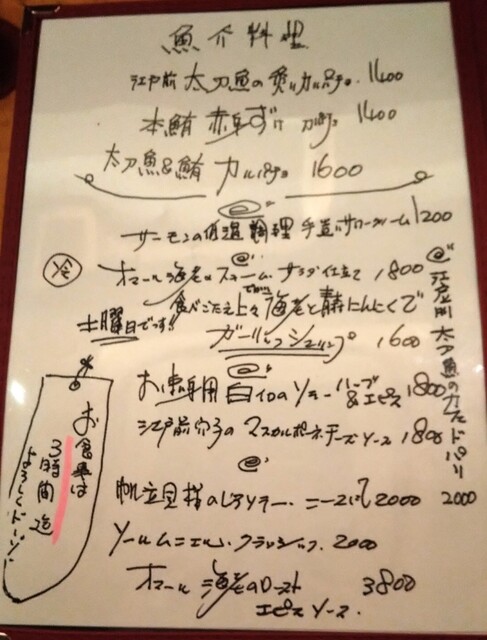 魚介料理
江戸前 太刀魚の炙りカルパチョ. 1400
本鮪 赤身づけ カルパチョ 1400
太刀魚&鮪 カルパチョ 1600
サーモンの低温調理 手造りサワークリーム 1200
冷
オマール海老のスチーム. サラダ仕立て 1800
でかい
食べごたえ上々海老と青森にんにくで
土曜日です!!
ガーリックシュリンプ 1600
白イカのソテー ハーブ&エピス 1800
江戸前穴子の マスカルポーネチーズソース 1800
帆立貝柱のレアソテー. 2000
ソールムニエル. クラシック. 2000
オマール海老のロースト 3800
エピスソース.
太刀魚の 2000
お食事は
3時間迄
よろしくドーゾ!